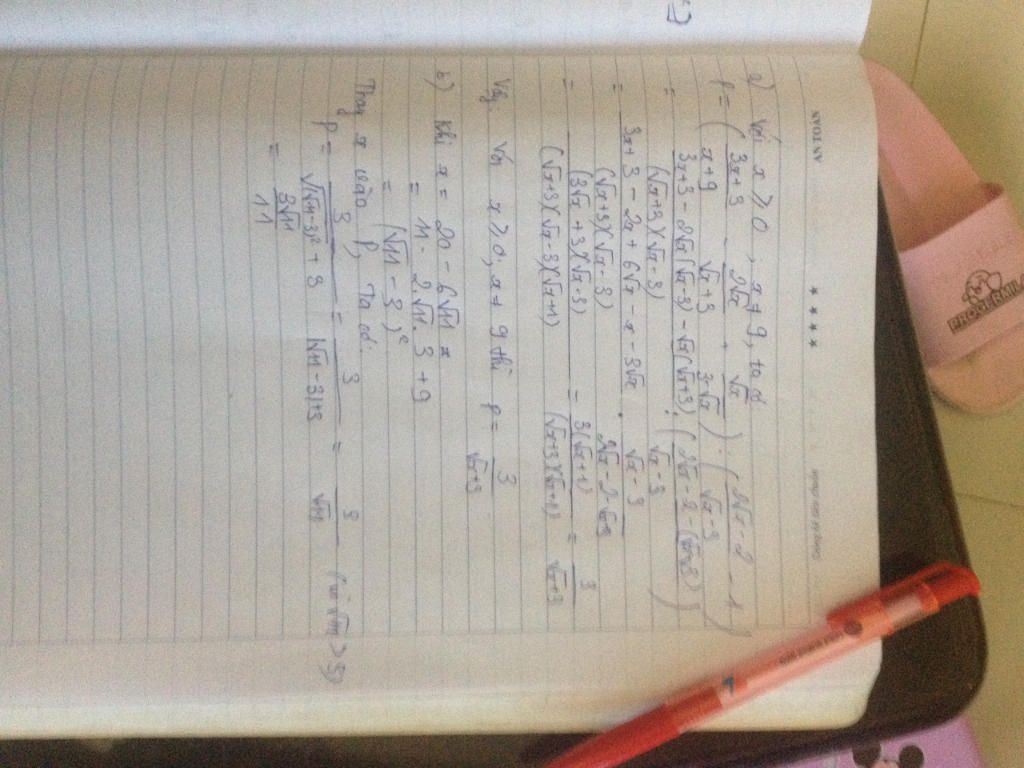 a) Với x ≥ 0 ; x ≠ 9, ta có
P = ( (3x+3)/(x+9) - 2√x/(√x+3) + √x/(3-√x) ) : ( (2√x-2)/(√x-3) - 1 )
= (3x+3-2√x(√x-3)-√x(√x+3))/((√x+3)(√x-3)) : ( (2√x-2-(√x-3))/(√x-3) )
= (3x+3-2x+6√x-x-3√x)/((√x+3)(√x-3)) · (√x-3)/(2√x-2-√x+3)
= ((3√x+3)(√x-3))/((√x+3)(√x-3)(√x+1)) = 3(√x+1)/((√x+3)(√x+1)) = 3/(√x+3)
Vậy với x ≥ 0; x ≠ 9 thì P = 3/(√x+3)
b) Khi x = 20 - 6√11
= 11 - 2√11.3 + 9
= (√11 - 3)²
Thay x vào P, Ta có:
P = 3/(√(√11-3)² + 3) = 3/(|√11-3|+3) = 3/√11 (vì √11 > 3)
= 3√11/11
AN TOÀN
★ ★ ★ ★
PROVERMILA